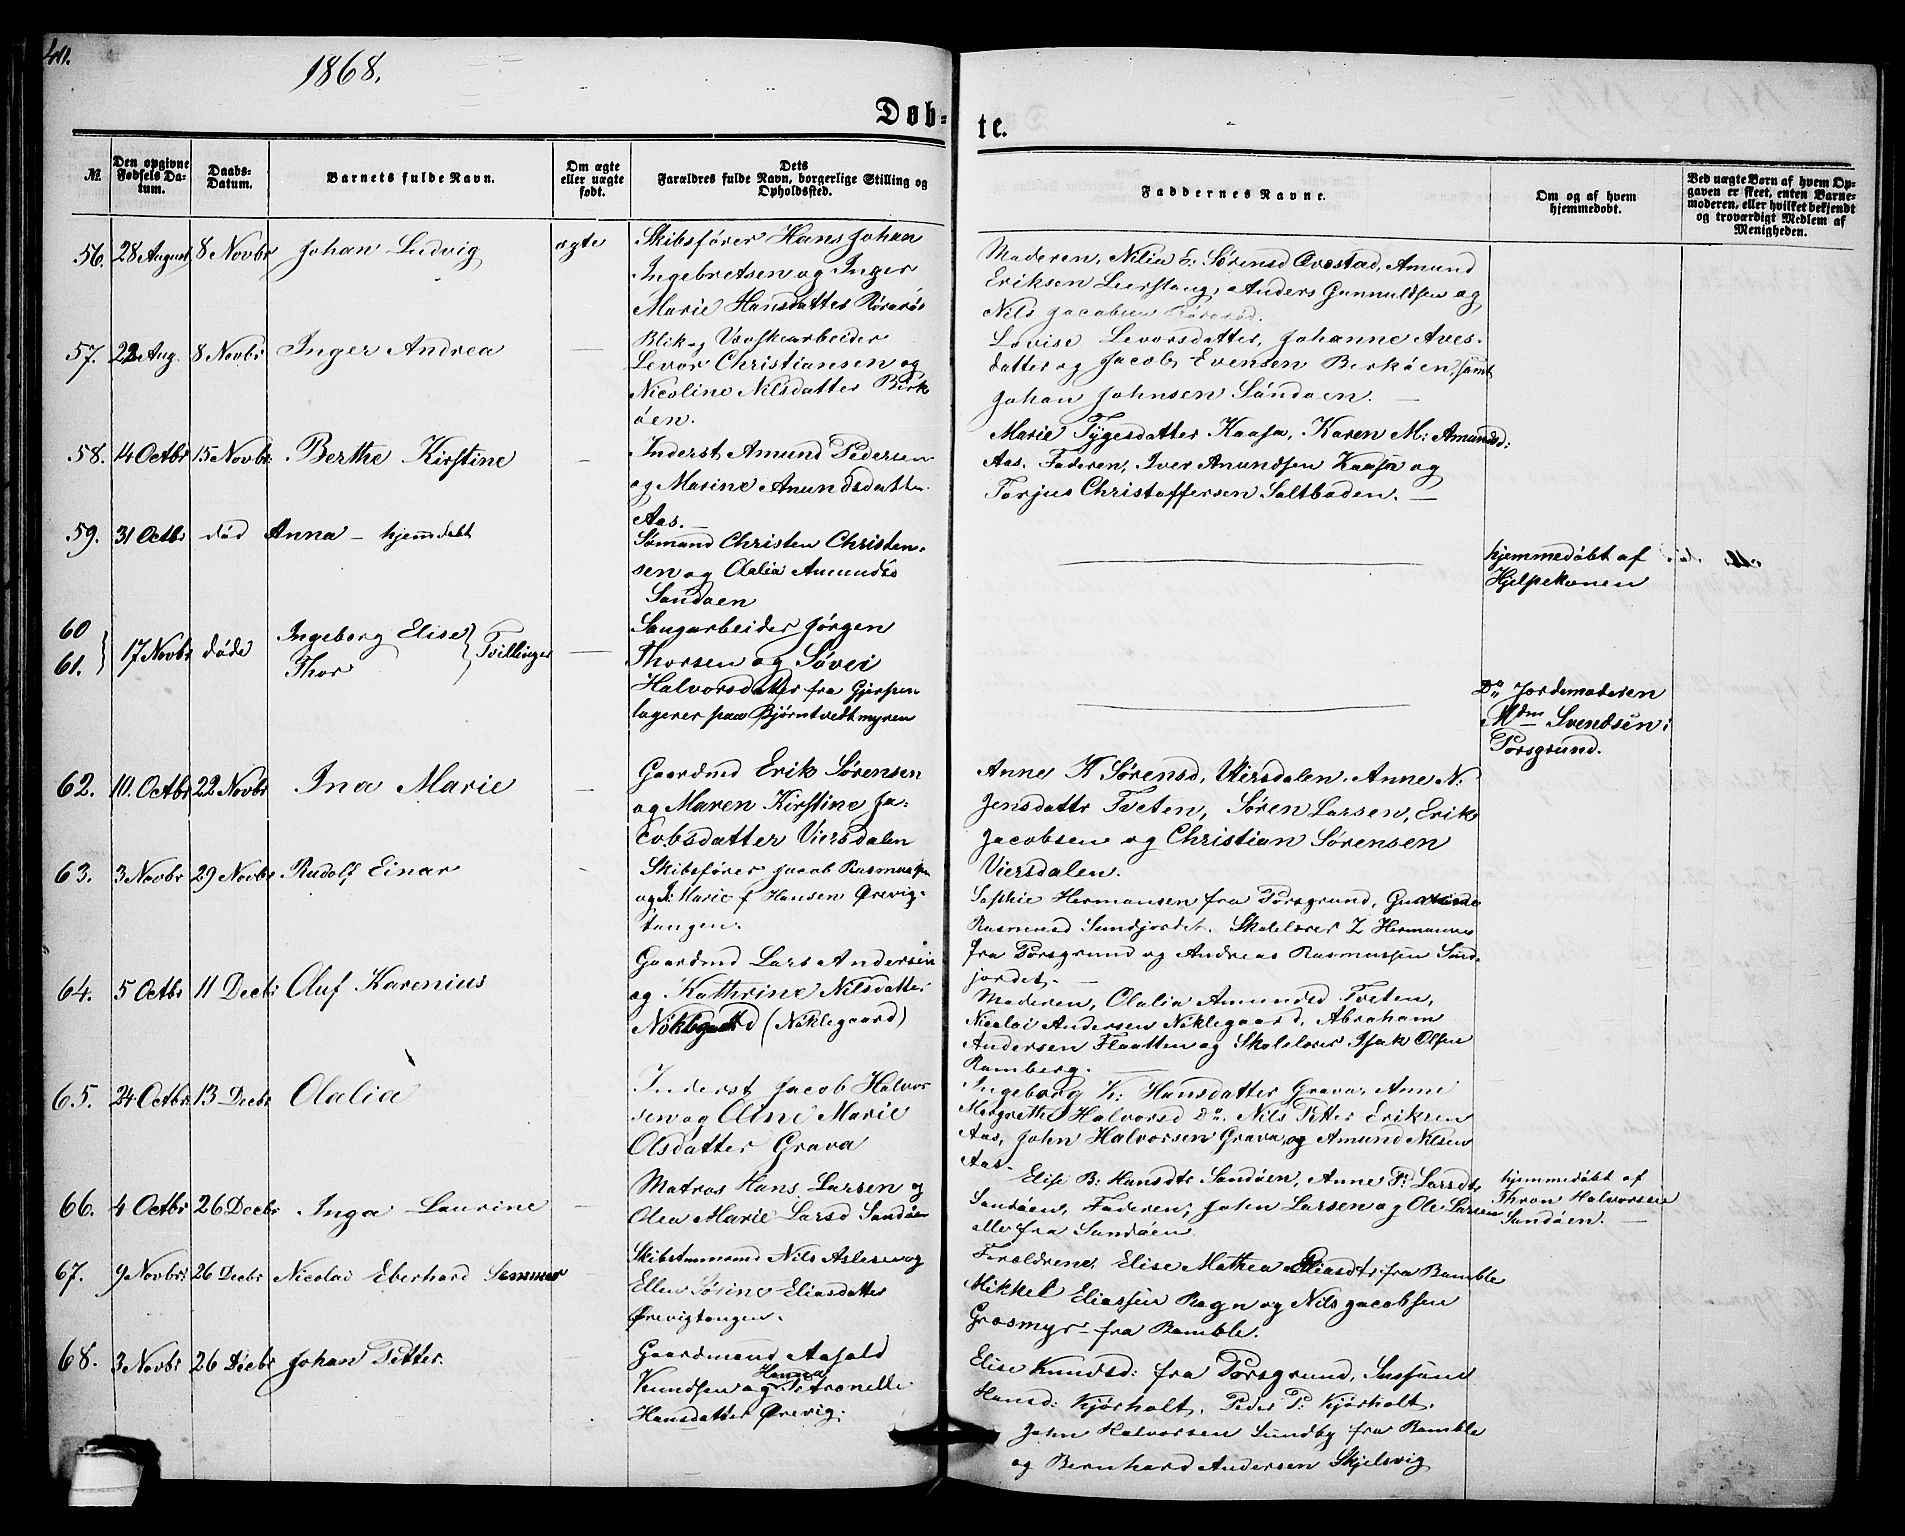 40.
1868.
Døb-
te.
№.
Den opgivne Fødsels Da-tum.
Daabs-Datum.
Barnets fulde Navn.
Om ægte eller uægte født.
Dets Forældres fulde Navn, borgerlige Stilling og Opholdssted.
Faddernes Navne.
Om og af hvem hjemmedøbt.
Ved uægte Børn af hvem Op-gaven er skeet, enten Barne-moderen, eller hvilket bekjendt og troværdigt Medlem af Menigheden.
56. 28 August 8 Novbr Johan Ludvig ægte
Skibsfører Hans Johan
Ingebretsen og Inger
Marie Hansdatter Rørerød
Moderen, Nilia S: Sørensd Ovestad, Amund
Eriksen Leerstang, Anders Gunnuldsen og
Nils Jacobsen Rørerød.
57. 22 Aug. 8 Novbr Inger Andrea —
Blik og Værkarbeider
Levor Christiansen og
Nicoline Nilsdatter Birk
øen.
Lovise Levorsdatter, Johanne Aves-
datter og Jacob Evensen Berkøen, samt
Johan Johnsen Sandøen. —
58. 14 Octbr 15 Novbr. Berthe Kirstine —
Inderst Amund Pedersen
og Marine Amundsdatter
Aas. —
Marie Tygesdatter Kaasa, Karen M: Amundsd:
Aas. Faderen, Iver Amundsen Kaasa og
Torjus Christoffersen Saltboden. —
59. 31 Octbr død Anna — hjemdøbt
Sømand Christen Christen-
sen og Olalia Amundsd
Sandøen
hjemmedøbt af
Hjelpekonen
60
61. } 17 Novbr døde Ingeborg Elise
Thor } Tvillinger —
Saugarbeider Jørgen
Thorsen og Søvei
Halvorsdatter fra Gjerpen
logerer paa Bjørntvedtmyren
Do Jordemoderen
Mdm Svendsen i
Porsgrund.
62. 10. Octbr 22 Novbr Ina Marie —
Gaardmd Erik Sørensen
og Maren Kirstine Ja-
cobsdatter Viersdalen
Anne K Sørensd, Viersdalen, Anne N.
Jensdattr Tveten, Søren Larsen, Erik
Jacobsen og Christian Sørensen
Viersdalen.
63. 3 Novbr 29 Novbr Rudolf Einar
Skibsfører Jacob Rasmussen
og J: Marie f Hansen Ørevig-
tangen.
Sophie Hermansen fra Porsgrund,
Rasmusd Sundjordet. Skolelærer Z Hermansen
fra Porsgrund og Andreas Rasmussen Sund-
jordet. —
64. 5 Octbr 11 Decbr Oluf Karenius
Gaardmd Lars Andersen
og Kathrine Nilsdatter
Nøklegaard (Nøklegaard)
Moderen, Olalia Amundsd Tveten,
Nicolai Andersen Nøklegaard, Abraham
Andersen Flaatten og Skolelærer Isak Olsen
Ramberg. —
65. 24 Octbr 13 Decbr Olalia
Inderst Jacob Halvor
sen og Aline Marie
Olsdatter Grava
Ingeborg K: Hansdatter Grava, Anne
Margrethe Halvorsd Do. Nils Petter Eriksen
Aas, John Halvorsen Grava, og Amund Nilsen
Aas.
66. 4 Octbr 26 Decbr Inga Laurine —
Matros Hans Larsen og
Olea Marie Larsd Sandøen
Elise B: Hansdtr Sandøen, Anne P: Larsdtr
Sandøen, Faderen, John Larsen og Ole Larsen
alle fra Sandøen.
hjemmedøbt af
Thron Halvorsen
Sandøen. —
67. 9 Novbr: 26 Decbr Nicolai Eberhard Sommer
Skibstømmermd Nils Aslesen og
Ellen Sørine Eliasdatter
Ørevigtangen.
Forældrene, Elise Mathea Eliasdtr fra Bamble
Mikkel Eliassen Rogn og Nils Jacobsen
Grosmyr fra Bamble.
68. 3 Novbr 26 Decbr Johan Petter.
Gaardmand Aasold
Knudsen og Hanna Petronelle
Hansdatter Ørevig.
Elise Knudsd: fra Porsgrund, Sussane
Hansd: Kjørholt, Peder P: Kjørholt.
John Halvorsen Sundby fra Bamble
og Bernhard Andersen Skjelsvig